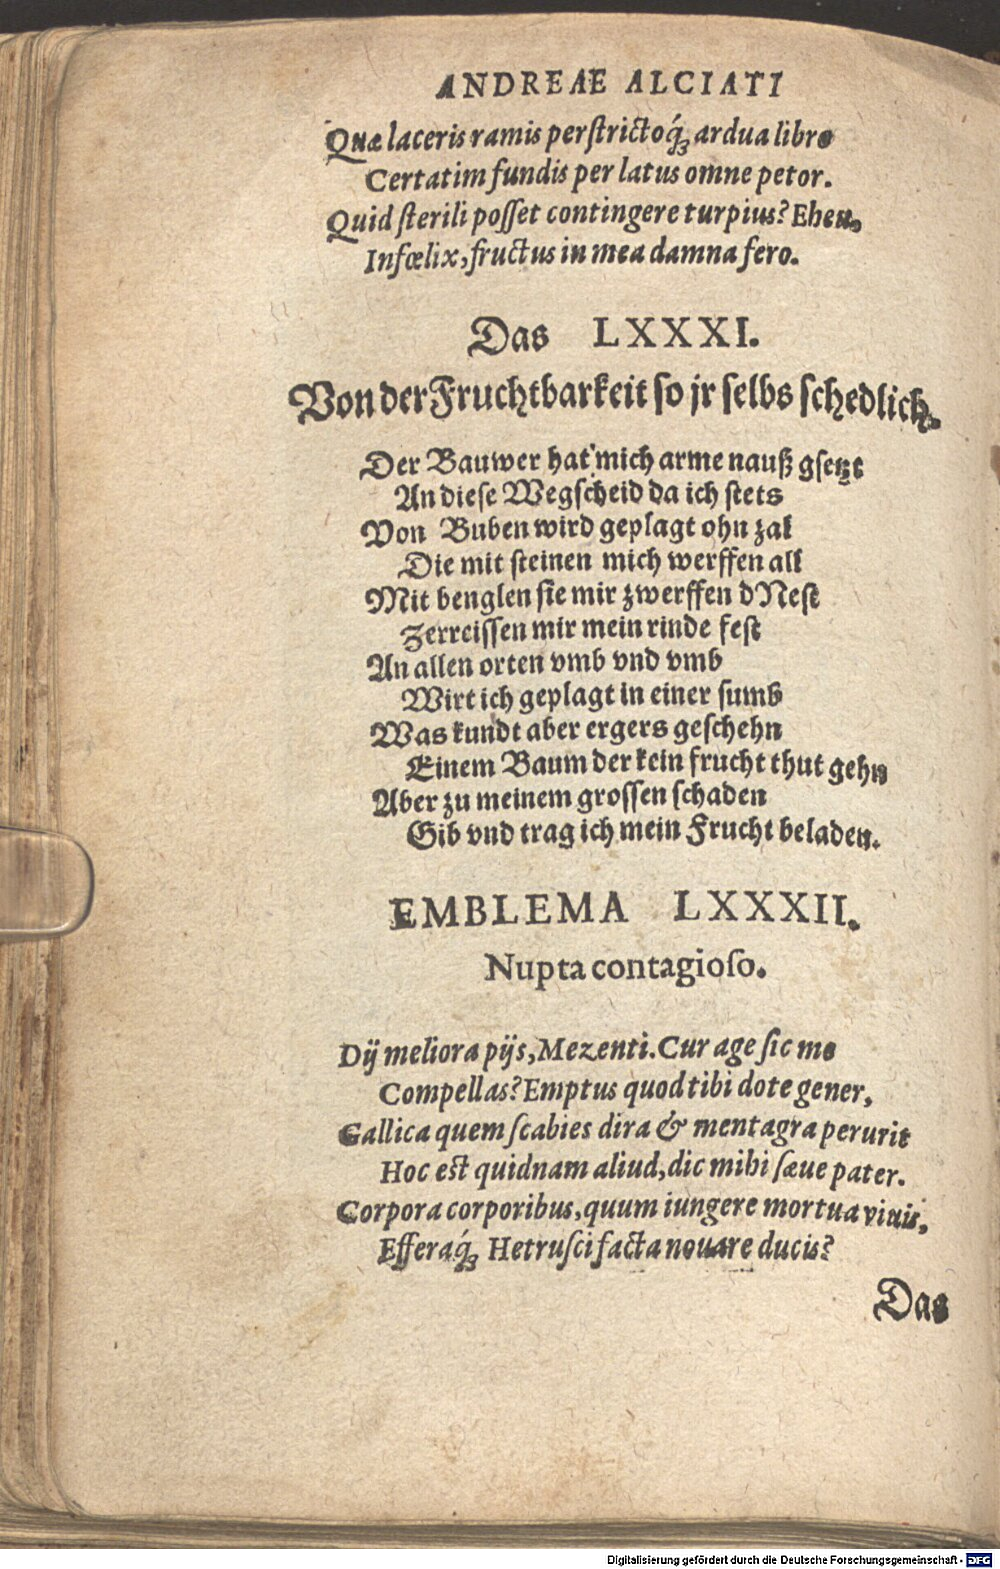 ANDREAE ALCIATI
Quæ laceris ramis perstrictóq; ardua libro
Certatim fundis per latus omne petor.
Quid sterili posset contingere turpius? Eheu,
Infœlix, fructus in mea damna fero.
Das LXXXI.
Von der Fruchtbarkeit so jr selbs schedlich.
Der Bauwer hat mich arme nauß gsetzt
An diese Wegscheid da ich stets
Von Buben wird geplagt ohn zal
Die mit steinen mich werffen all
Mit benglen sie mir zwerffen d Nest
Zerreissen mir mein rinde fest
An allen orten vmb vnd vmb
Wirt ich geplagt in einer sumb
Was kundt aber ergers geschehn
Einem Baum der kein frucht thut gehn
Aber zu meinem grossen schaden
Gib vnd trag ich mein Frucht beladen.
EMBLEMA LXXXII.
Nupta contagioso.
Dij meliora pijs, Mezenti. Cur age sic me
Compellas? Emptus quod tibi dote gener,
Gallica quem scabies dira & mentagra perurit
Hoc est quidnam aliud, dic mihi sæue pater.
Corpora corporibus, quum iungere mortua viuis,
Efferaq́; Hetrusci facta nouare ducis?
Das
Digitalisierung gefördert durch die Deutsche Forschungsgemeinschaft - DFG